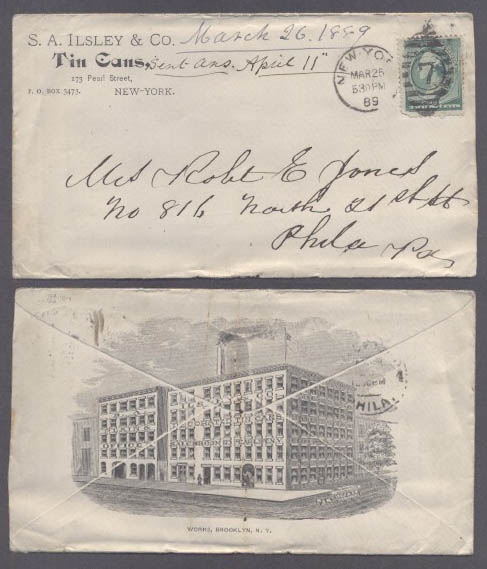 S. A. ILSLEY & CO. March 26. 1889
Tin Cans, Sent Ans. April 11"
173 Pearl Street,
P. O. BOX 3473. NEW-YORK.
NEW-YORK
MAR 25
530 PM
89
7
Mrs Robt E Jones
No 816 North 21st St
Phila Pa
PHILA
WORKS, BROOKLYN, N. Y.